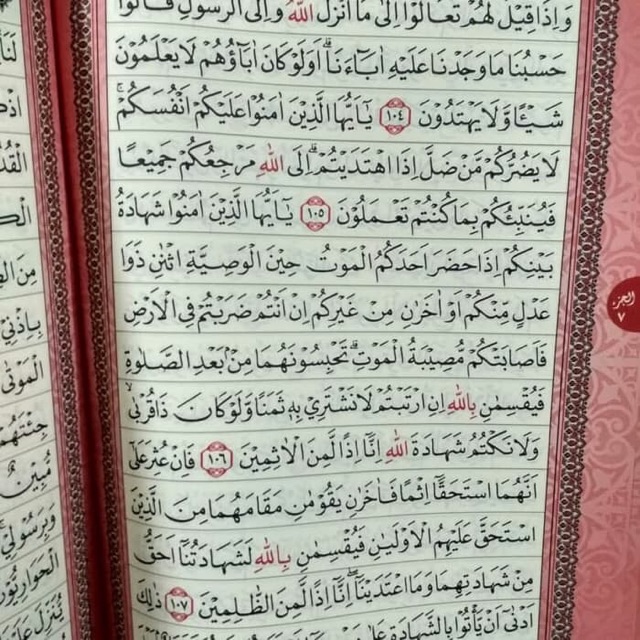 وَاِذَا قِيْلَ لَهُمْ تَعَالَوْا اِلٰى مَآ اَنْزَلَ اللّٰهُ وَاِلَى الرَّسُوْلِ قَالُوْا
حَسْبُنَا مَا وَجَدْنَا عَلَيْهِ اٰبَآءَنَاۗ اَوَلَوْ كَانَ اٰبَآؤُهُمْ لَا يَعْلَمُوْنَ
شَيْـًٔا وَّلَا يَهْتَدُوْنَ ١٠٤ يٰٓاَيُّهَا الَّذِيْنَ اٰمَنُوْا عَلَيْكُمْ اَنْفُسَكُمْۚ
لَا يَضُرُّكُمْ مَّنْ ضَلَّ اِذَا اهْتَدَيْتُمْۗ اِلَى اللّٰهِ مَرْجِعُكُمْ جَمِيْعًا
فَيُنَبِّئُكُمْ بِمَا كُنْتُمْ تَعْمَلُوْنَ ١٠٥ يٰٓاَيُّهَا الَّذِيْنَ اٰمَنُوْا شَهَادَةُ
بَيْنِكُمْ اِذَا حَضَرَ اَحَدَكُمُ الْمَوْتُ حِيْنَ الْوَصِيَّةِ اثْنٰنِ ذَوَا
عَدْلٍ مِّنْكُمْ اَوْ اٰخَرٰنِ مِنْ غَيْرِكُمْ اِنْ اَنْتُمْ ضَرَبْتُمْ فِى الْاَرْضِ
فَاَصَابَتْكُمْ مُّصِيْبَةُ الْمَوْتِۗ تَحْبِسُوْنَهُمَا مِنْۢ بَعْدِ الصَّلٰوةِ
فَيُقْسِمٰنِ بِاللّٰهِ اِنِ ارْتَبْتُمْ لَا نَشْتَرِيْ بِهٖ ثَمَنًا وَّلَوْ كَانَ ذَا قُرْبٰىۙ
وَلَا نَكْتُمُ شَهَادَةَ اللّٰهِ اِنَّآ اِذًا لَّمِنَ الْاٰثِمِيْنَ ١٠٦ فَاِنْ عُثِرَ عَلٰٓى
اَنَّهُمَا اسْتَحَقَّآ اِثْمًا فَاٰخَرٰنِ يَقُوْمٰنِ مَقَامَهُمَا مِنَ الَّذِيْنَ
اسْتَحَقَّ عَلَيْهِمُ الْاَوْلَيٰنِ فَيُقْسِمٰنِ بِاللّٰهِ لَشَهَادَتُنَآ اَحَقُّ
مِنْ شَهَادَتِهِمَا وَمَا اعْتَدَيْنَآۖ اِنَّآ اِذًا لَّمِنَ الظّٰلِمِيْنَ ١٠٧ ذٰلِكَ
اَدْنٰٓى اَنْ يَّأْتُوْا بِالشَّهَادَةِ عَلٰى
الجزء
٧